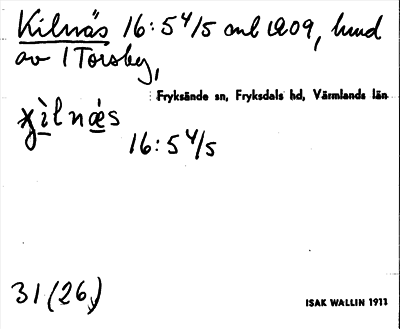 Kilnäs 16:5⁴/5 enl 1909, hund
av 1 Torsby,
Fryksände sn, Fryksdals hd, Värmlands län
χìlnǽs
16:5⁴/5
31 (26)
ISAK WALLIN 1911